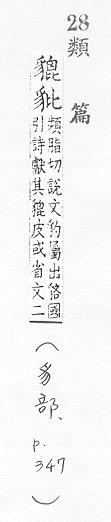 28 類篇
貔豼
頻脂切說文豹屬出貉國
引詩獻其貔皮或省文二
(豸部、p.347)